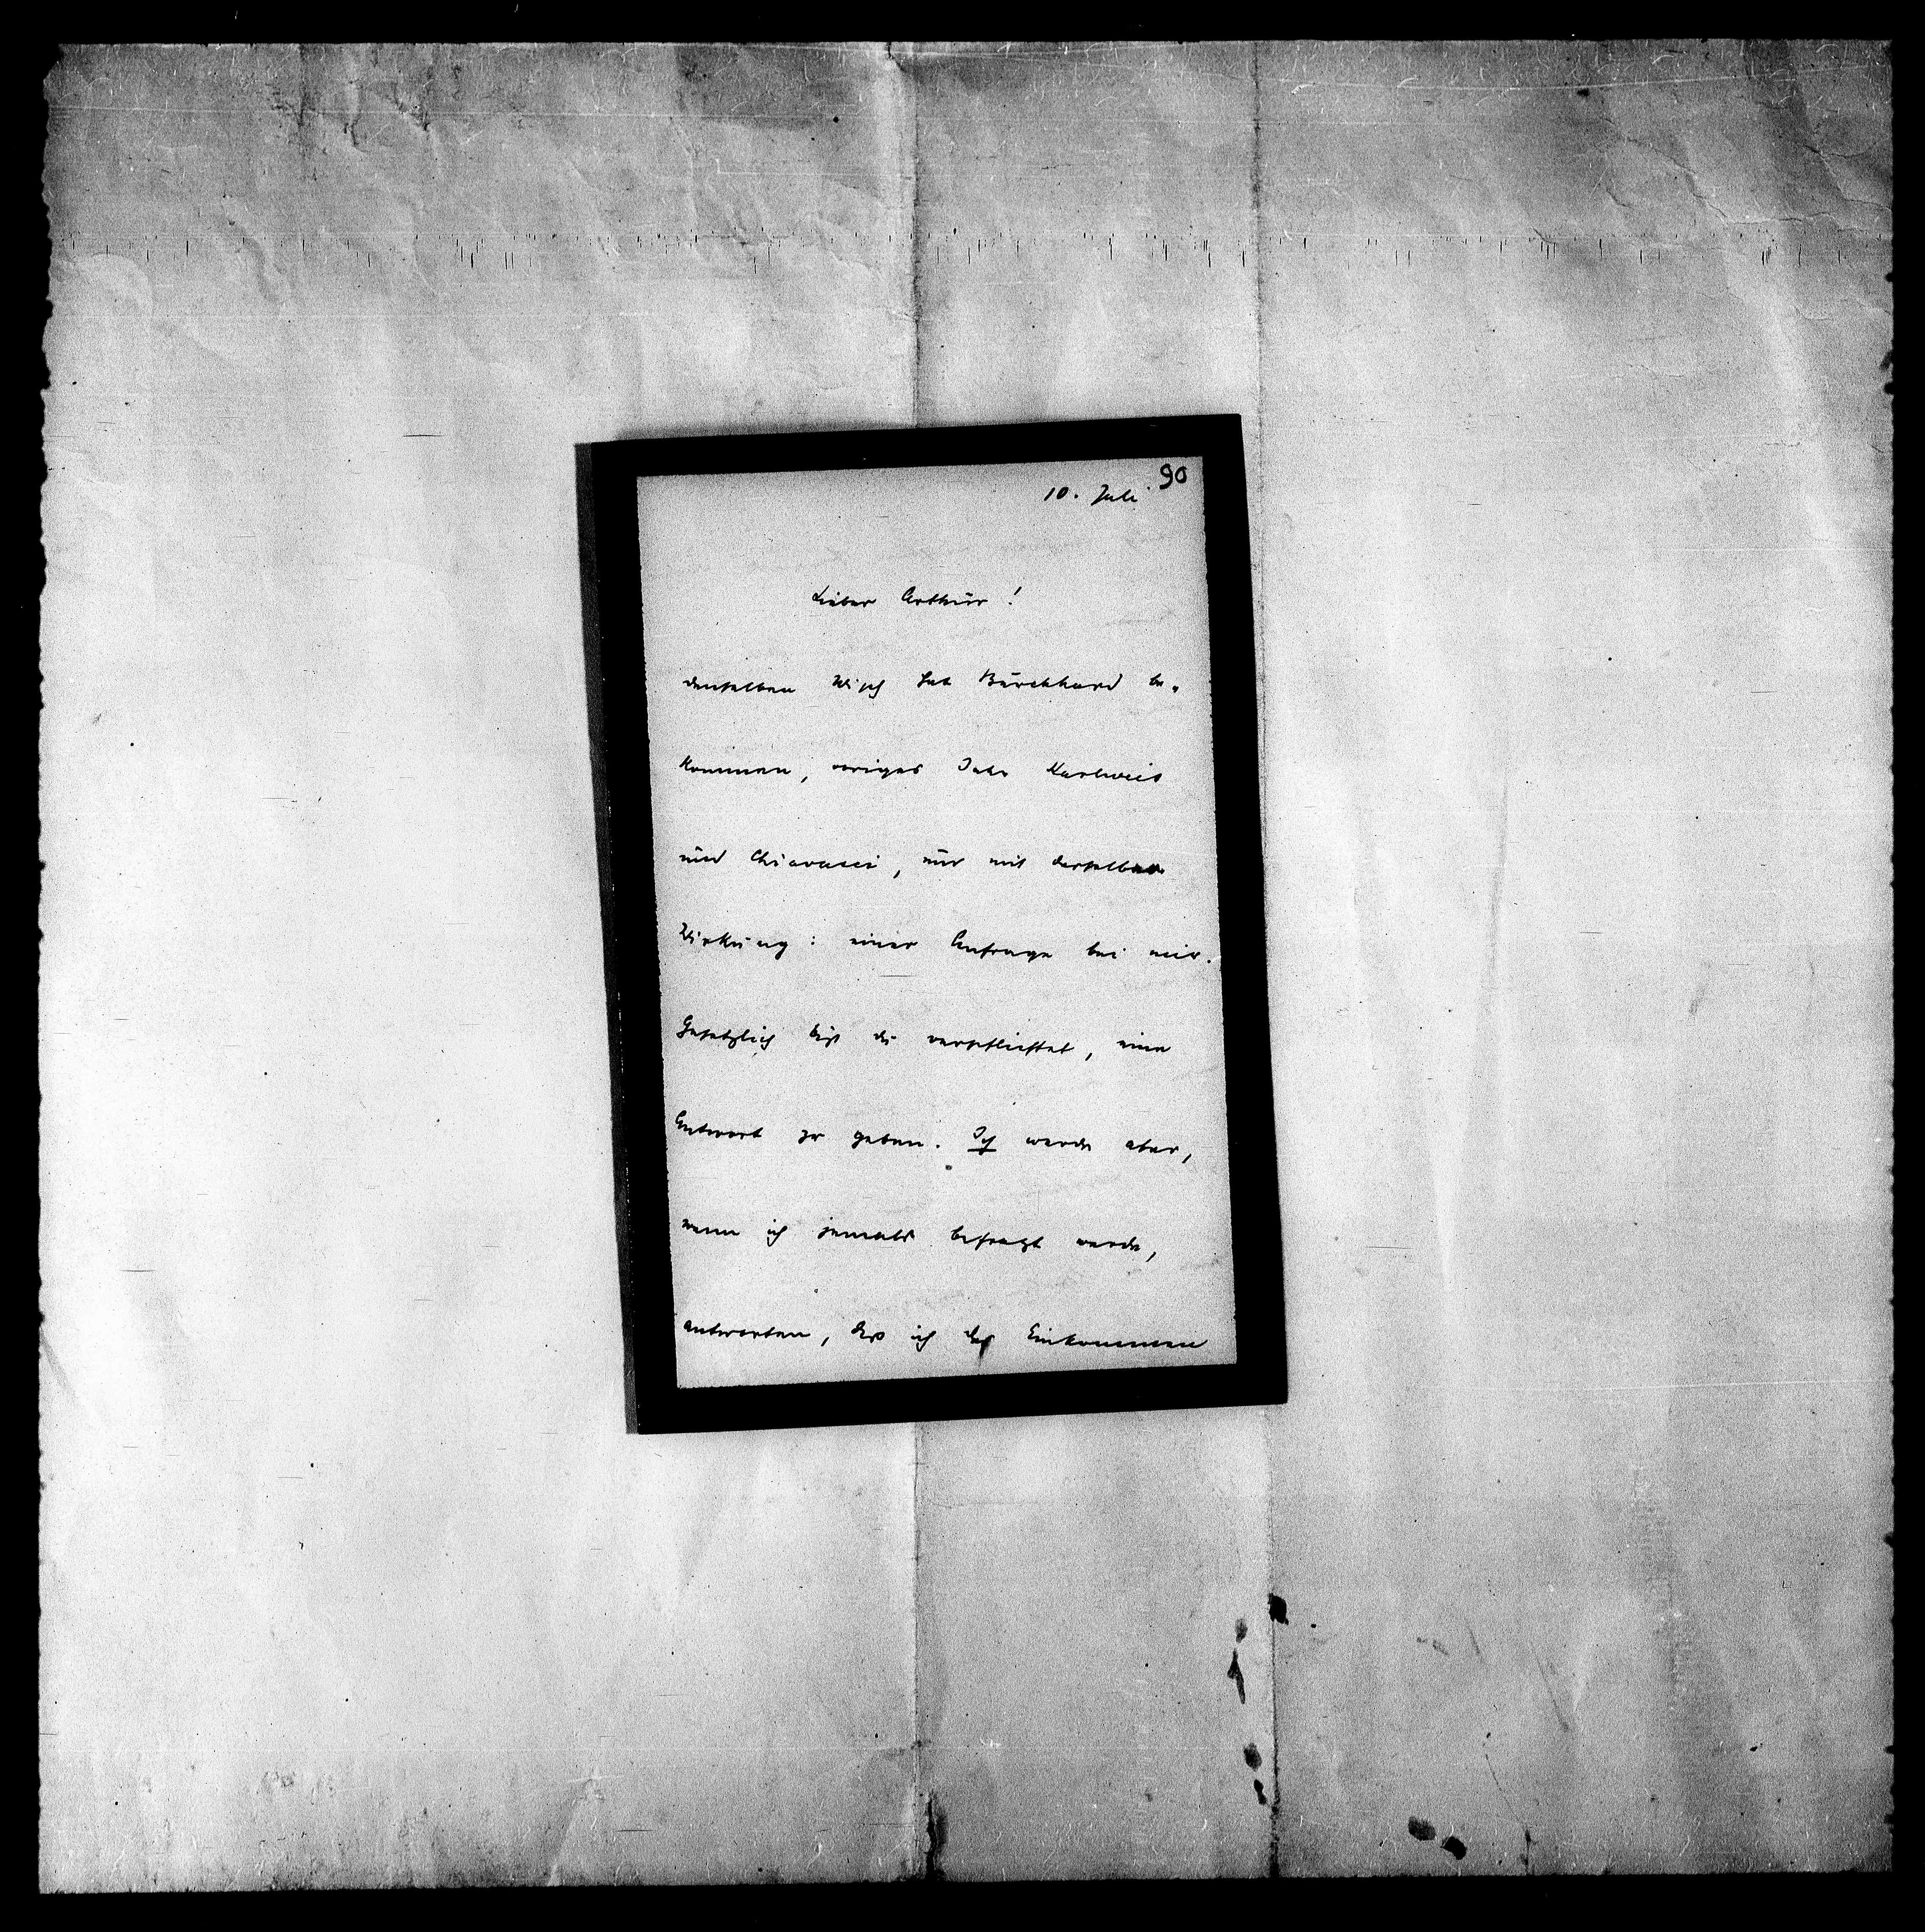 90
10. Juli.
Lieber Arthur!
denselben Wisch hat Burckhard be-
kommen, voriges Jahr Karlweis
und Chiavacci, nur mit derselben
Wirkung: einer Anfrage bei mir.
Gesetzlich bist du verpflichtet, eine
Antwort zu geben. Ich werde aber,
wenn ich jemals befragt werde,
antworten, daß ich das Einkommen